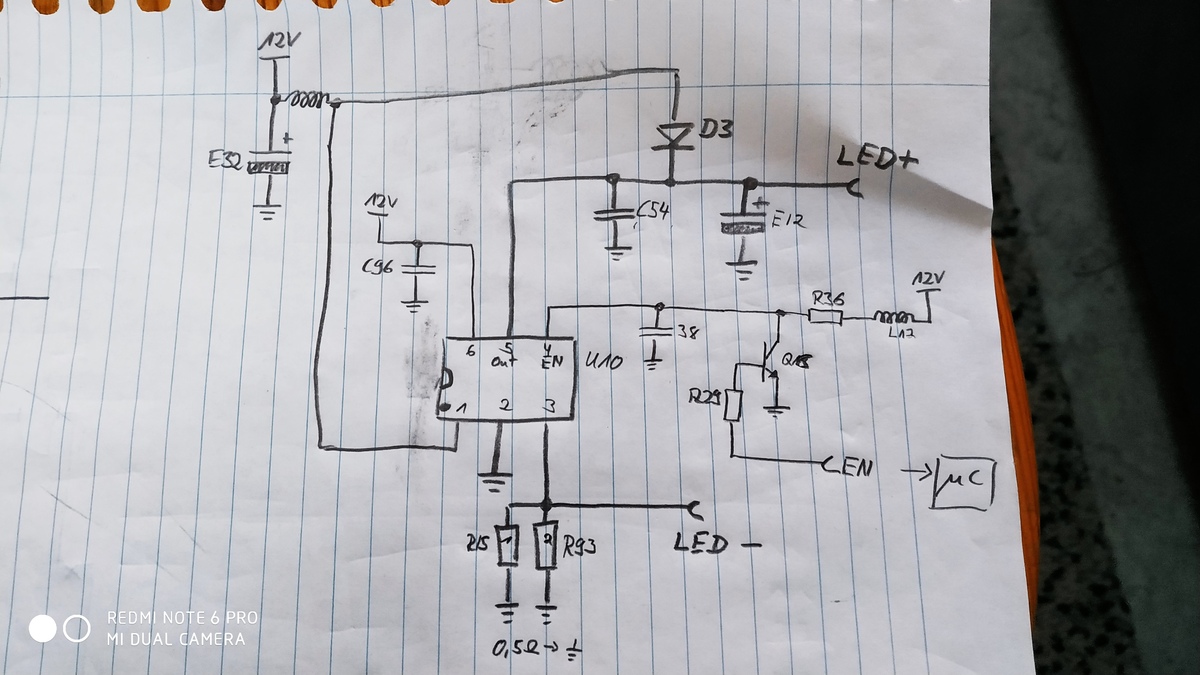 12V
E32
+
D3
LED+
12V
C54
+
E12
C96
12V
R36
L12
38
6
5
4
out
EN
U10
1
2
3
R29
EN
→ μC
R15
1
2
R93
LED -
0,5Ω →
REDMI NOTE 6 PRO
MI DUAL CAMERA